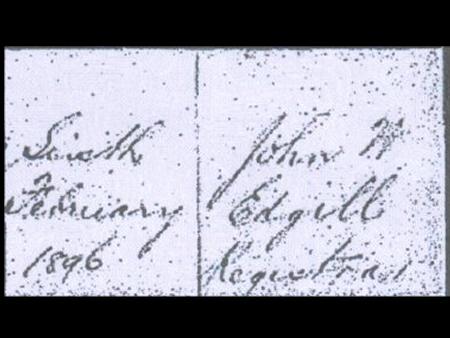 Sixth
February
1896
John W
Edgill
Registrar